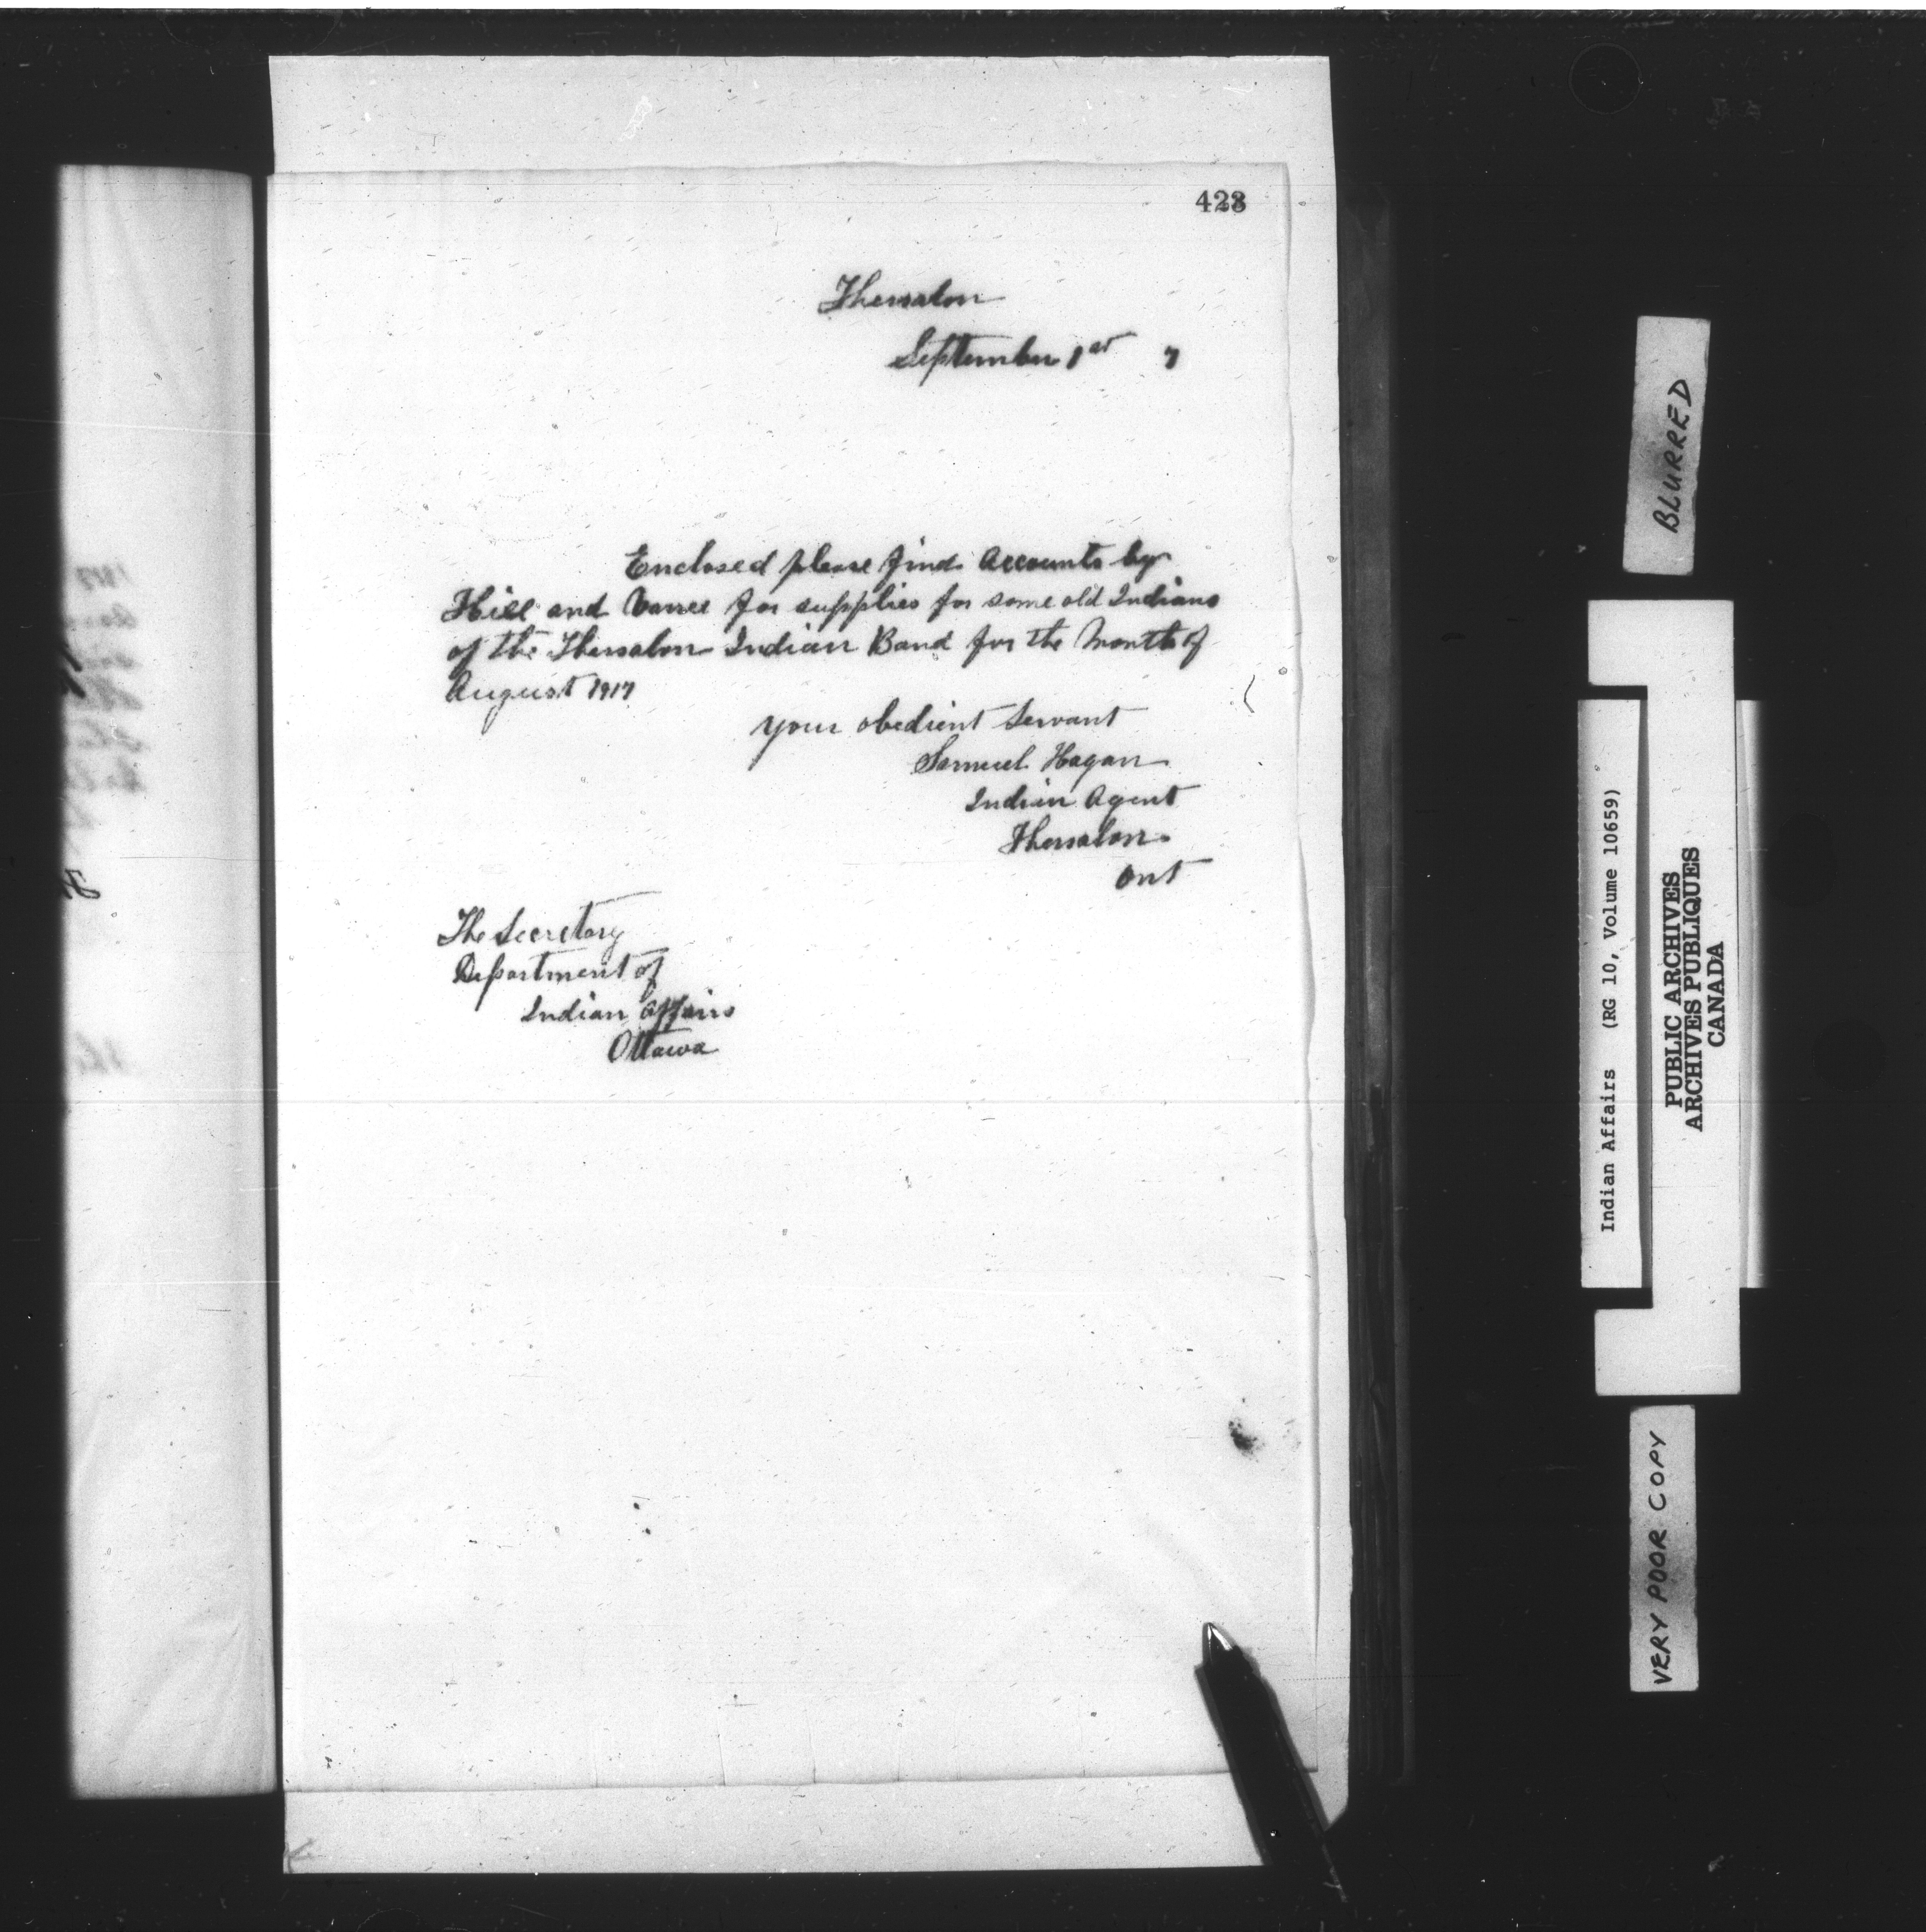 423
Thessalon
September 1st 7
Enclosed please find Accounts by
Hill and for supplies for some old Indians
of the Thessalon Indian Band for the Month of
August 1917
your obedient Servant
Samuel Hagan
Indian Agent
Thessalon
Ont
The Secretary
Department of
Indian Affairs
Ottawa
BLURRED
Indian Affairs (RG 10, Volume 10659)
PUBLIC ARCHIVES
ARCHIVES PUBLIQUES
CANADA
VERY POOR COPY